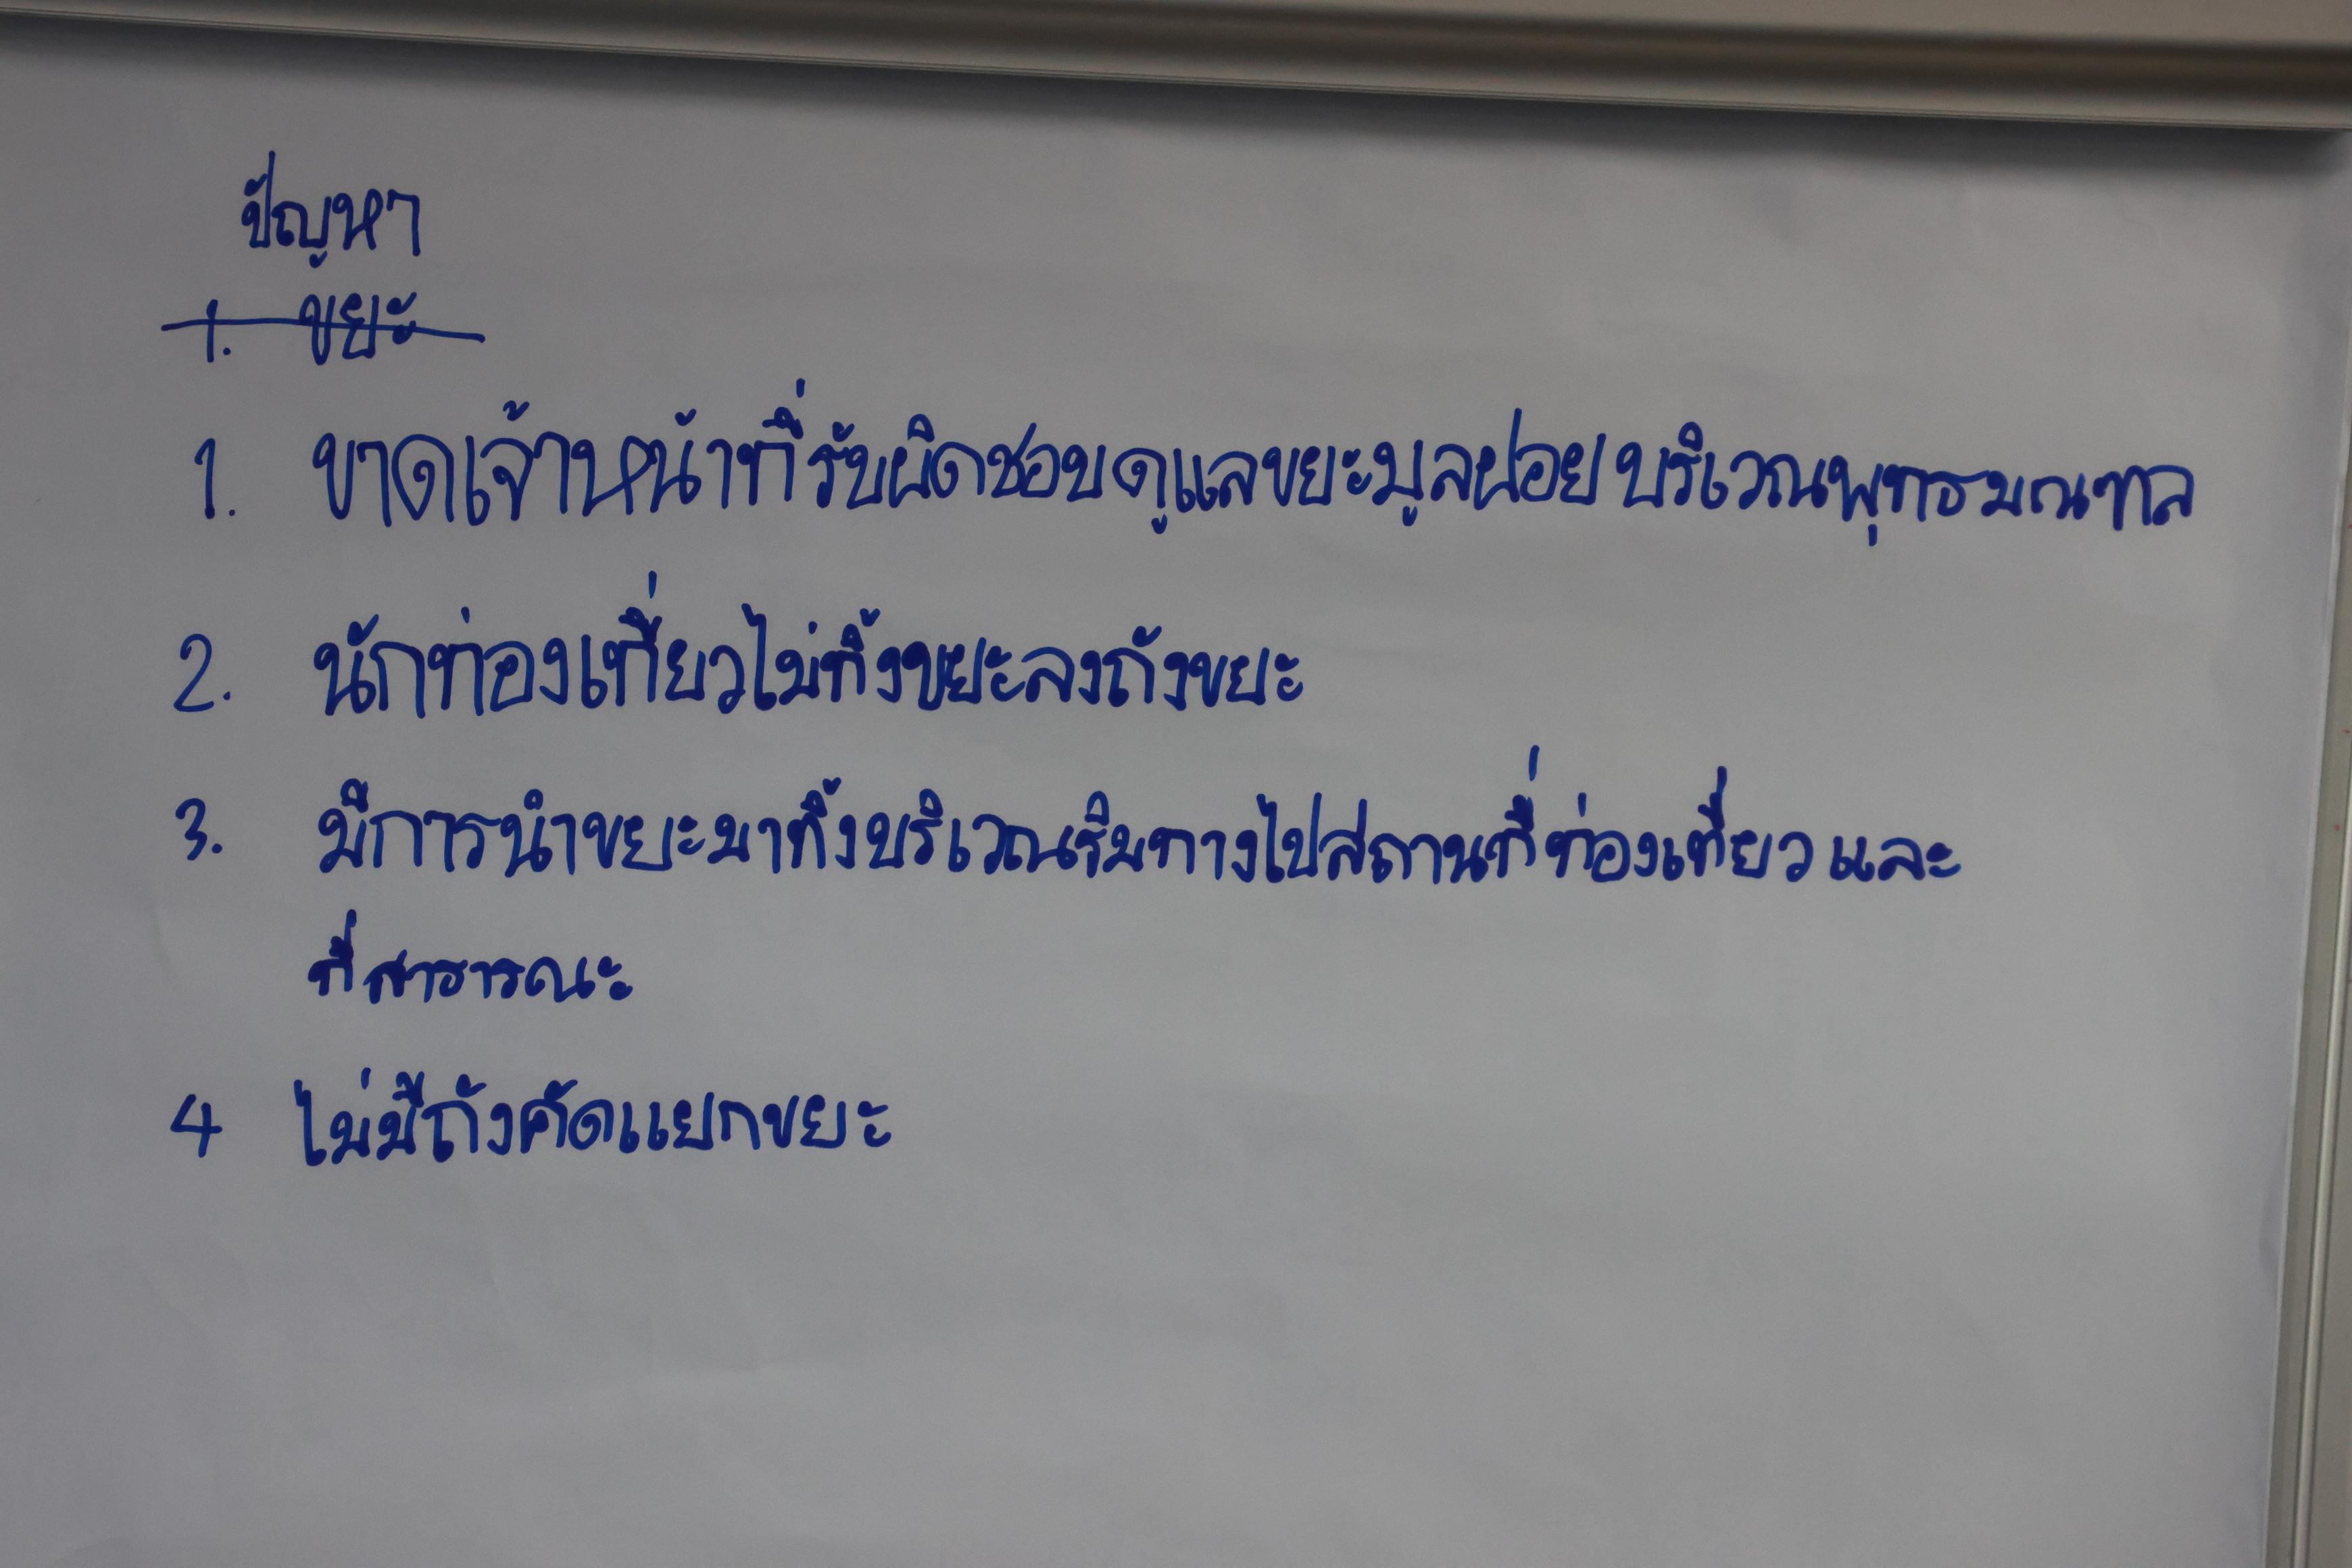 ปัญหา
1. ขยะ
1. ขาดเจ้าหน้าที่รับผิดชอบดูแลขยะมูลฝอย บริเวณพุทธมณฑล
2. นักท่องเที่ยวไม่ทิ้งขยะลงถังขยะ
3. มีการนำขยะมาทิ้งบริเวณริมทางไปสถานที่ท่องเที่ยว และ
ที่สาธารณะ
4 ไม่มีถังคัดแยกขยะ